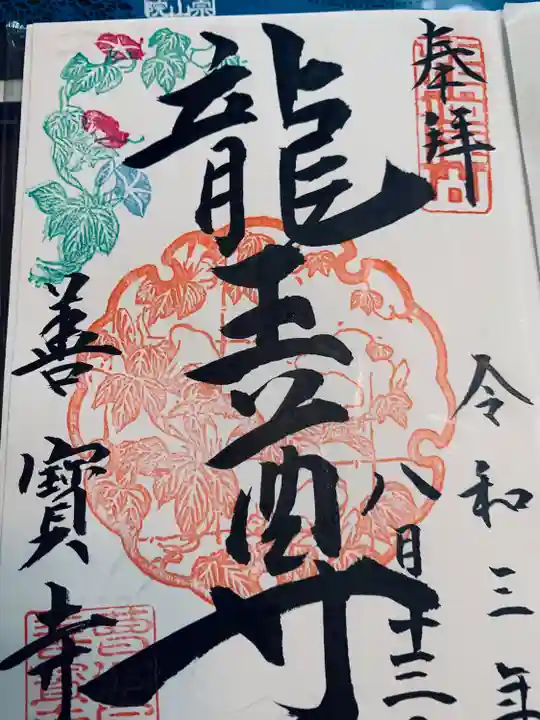 奉拝
令和三年
八月十三日
龍王尊
善寳寺